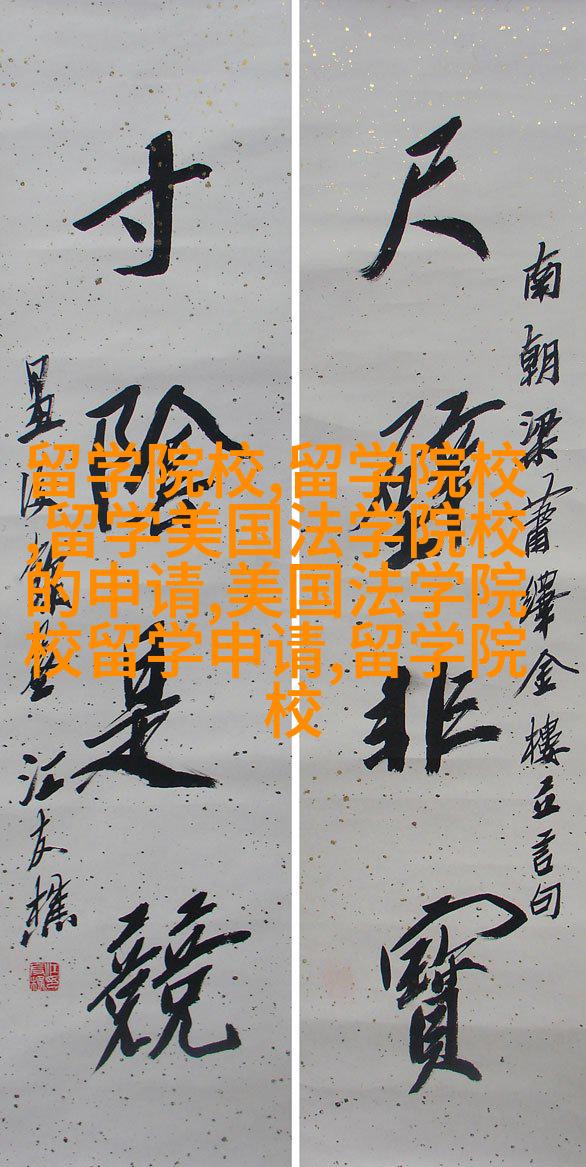 南朝梁蕭繹金樓立言句
尺璧非寶
寸陰是競
汪友樵
留学院校,留学院校
,留学美国法学院校
的申请,美国法学院
校留学申请,留学院
校